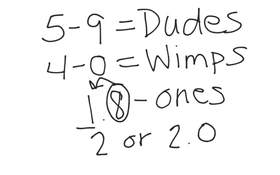 5-9=Dudes
4-0=Wimps
1.8-ones
2 or 2.0